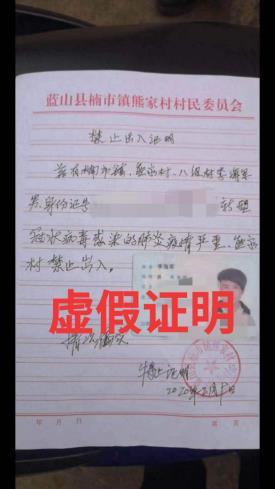 蓝山县楠市镇熊家村村民委员会
禁止出入证明
兹有楠市镇,熊家村,八组村李海军
身份证号 新型
冠状病毒感染的肺炎疫情严重,熊家
村禁止出入。
虚假证明
特此证明
2020年2月1日
年 月 日 第 页